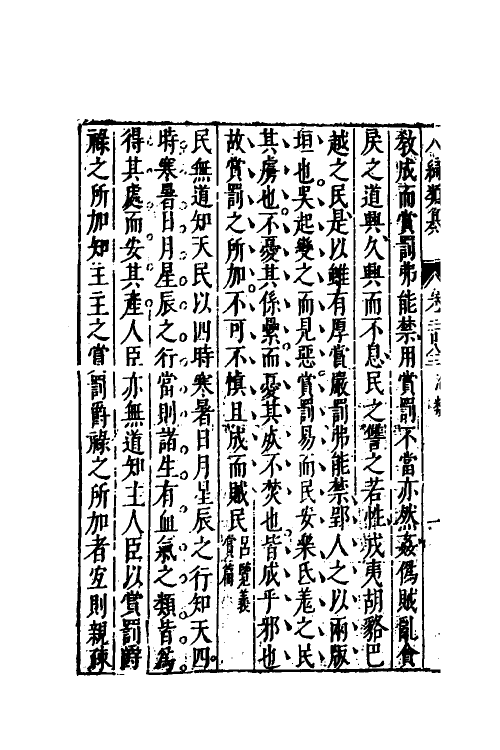 八編類纂 卷二百八十三 治類 一
教成而賞罰弗能禁用賞罰不當亦然姦僞賊亂貪
戾之道興久興而不息民之讐之若性戎夷胡貉巴
越之民是以雖有厚賞嚴罰弗能禁郢人之以兩版
垣也吳起變之而見惡賞罰易而民安樂氐羌之民
其虜也不憂其係纍而憂其死不焚也皆成乎邪也
故賞罰之所加不可不慎且成而賊民呂覽義賞篇
民無道知天民以四時寒暑日月星辰之行知天四
時寒暑日月星辰之行當則諸生有血氣之類皆爲
得其處而安其產人臣亦無道知主人臣以賞罰爵
祿之所加知主主之賞罰爵祿之所加者宜則親疎